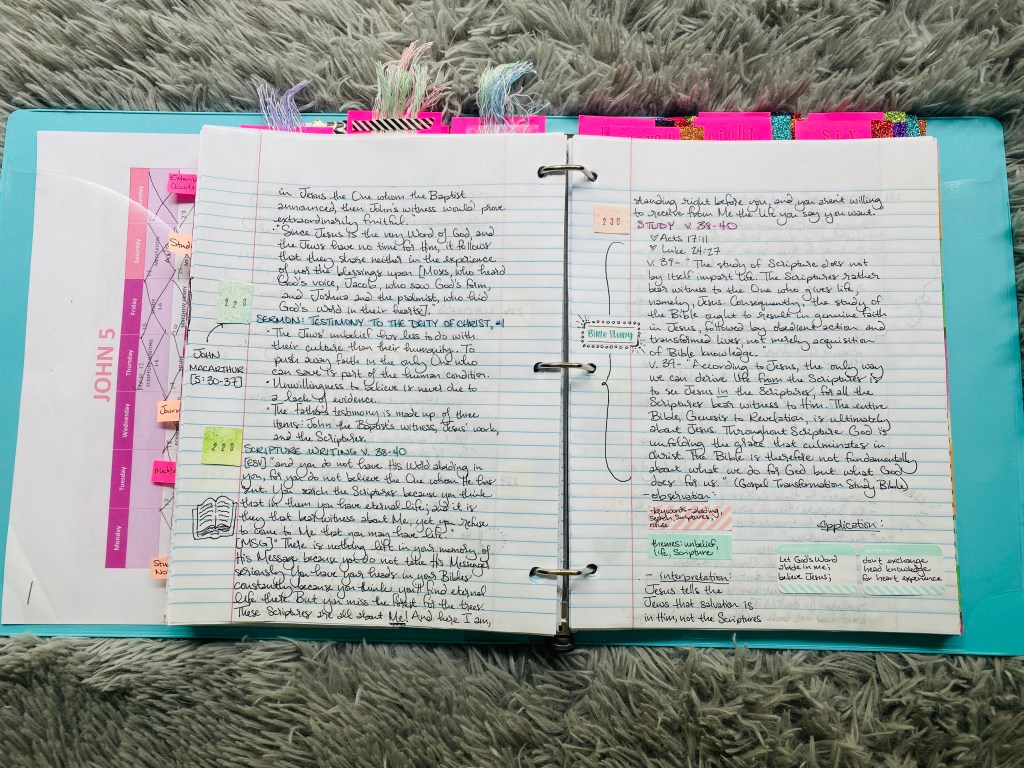 JOHN 5
Monday
Tuesday
Wednesday
Thursday
Friday
Saturday
Saturday
in Jesus the One whom the Baptist
announced, then John's witness would prove
extraordinarily fruitful."
"Since Jesus is the very Word of God, and
the Jews have no time for Him, it follows
that they share neither in the experience
of nor the blessings upon [Moses, who heard
God's voice, Jacob, who saw God's form,
and Joshua and the psalmist, who hid
God's Word in their hearts]."
220
SERMON: TESTIMONY TO THE DEITY OF CHRIST, #1
JOHN
MACARTHUR
[5:30-37]
• The Jews' unbelief has less to do with
their culture than their humanity. To
push away faith in the only One who
can save is part of the human condition.
• Unwillingness to believe is never due to
a lack of evidence.
• The Father's testimony is made up of three
items: John the Baptist's witness, Jesus' work,
and the Scriptures.
220
SCRIPTURE WRITING V. 38-40
[ESV] "and you do not have His Word abiding in
you, for you do not believe the One whom He has
sent. You search the Scriptures because you think
that in them you have eternal life; and it is
they that bear witness about Me, yet you refuse
to come to Me that you may have life."
[MSG] "There is nothing left in your memory of
His Message because you do not take His Message
seriously. You have your heads in your Bibles
constantly because you think you'll find eternal
life there. But you miss the forest for the trees.
These Scriptures are all about Me! And here I am,
standing right before you, and you aren't willing
to receive from Me the life you say you want."
230
STUDY V. 38-40
♡ Acts 17:11
♡ Luke 24:27
Bible Study
v. 39- "The study of Scripture does not
by itself impart life. The Scriptures rather
bear witness to the One who gives life,
namely, Jesus. Consequently, the study of
the Bible ought to result in genuine faith
in Jesus, followed by obedient action and
transformed lives, not merely acquisition
of Bible knowledge."
v. 39- "According to Jesus, the only way
we can derive life from the Scriptures is
to see Jesus in the Scriptures, for all the
Scriptures bear witness to Him. The entire
Bible, Genesis to Revelation, is ultimately
about Jesus. Throughout Scripture God is
unfolding the grace that culminates in
Christ. The Bible is therefore not fundamentally
about what we do for God but what God
does for us." (Gospel Transformation Study Bible)
- observation:
• keywords - abiding,
search, Scriptures,
refuse
themes: unbelief,
life, Scripture
- interpretation:
Jesus tells the
Jews that salvation is
in Him, not the Scriptures
Application:
let God's Word
abide in me;
believe Jesus;
don't exchange
head knowledge
for heart experience